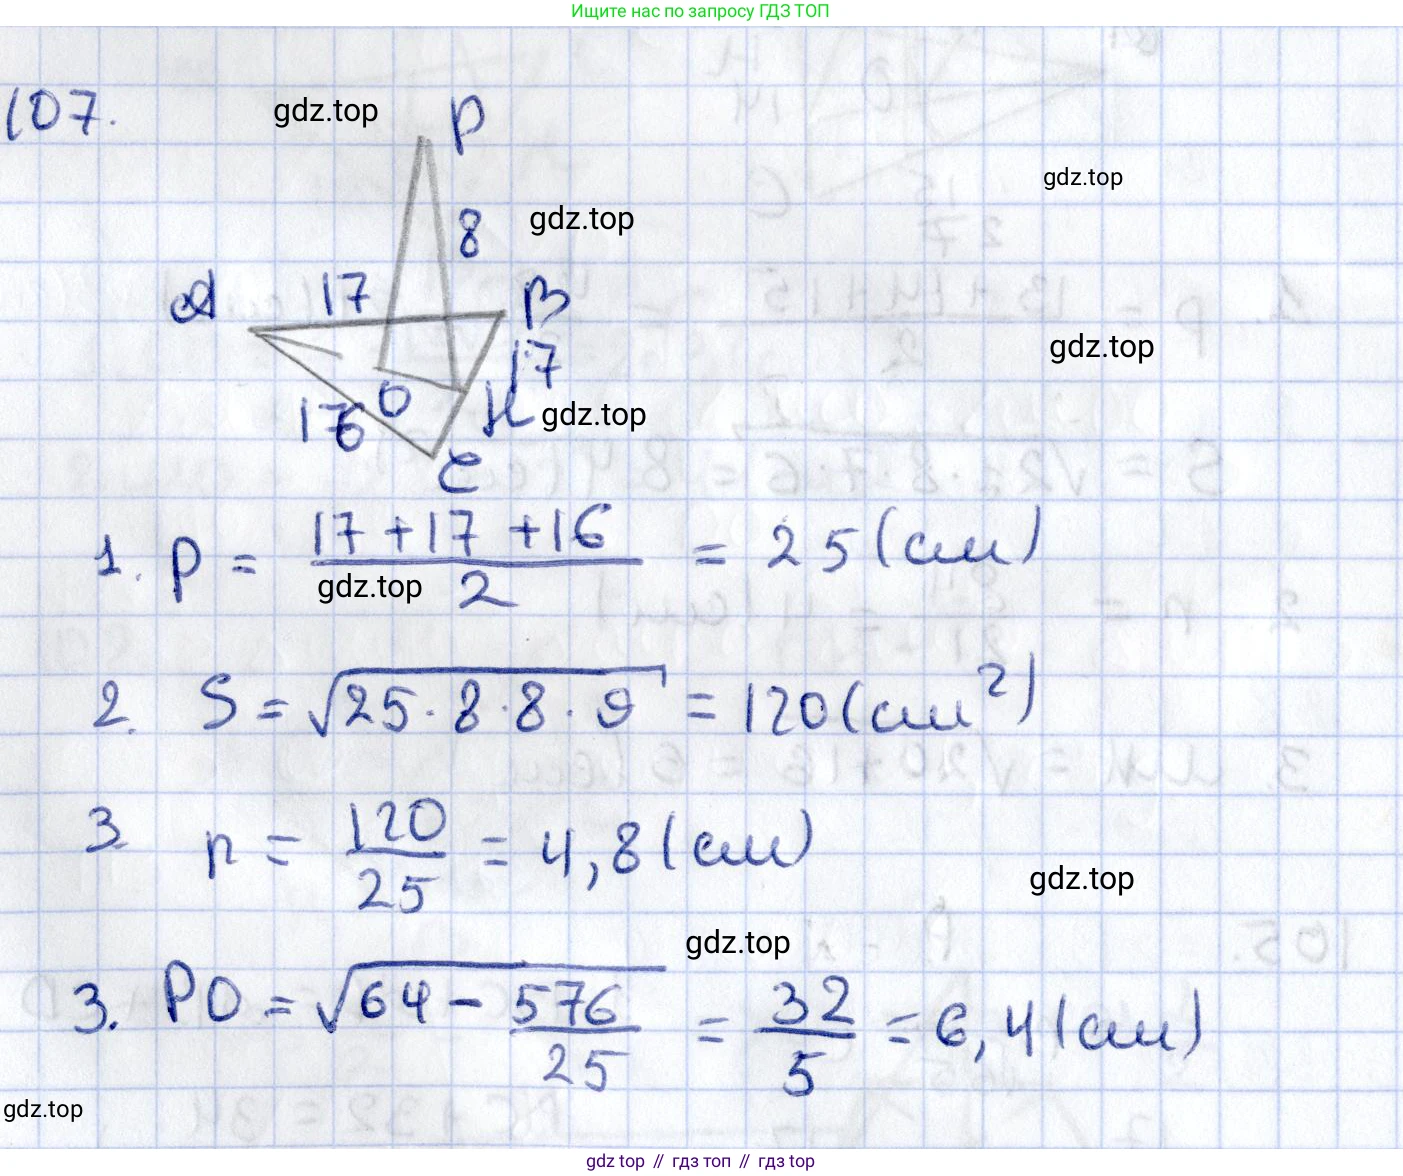 Ищите нас по запросу ГДЗ ТОП
107.
gdz.top
P
gdz.top
8
gdz.top
A
17
B
gdz.top
17
O
H
gdz.top
16
C
1. p = (17 + 17 + 16) / 2 = 25 (см)
gdz.top
2. S = √(25 · 8 · 8 · 9) = 120 (см²)
3. r = 120 / 25 = 4,8 (см)
gdz.top
gdz.top
3. PO = √(64 − 576 / 25) = 32 / 5 = 6,4 (см)
gdz.top
gdz top // гдз топ // gdz top